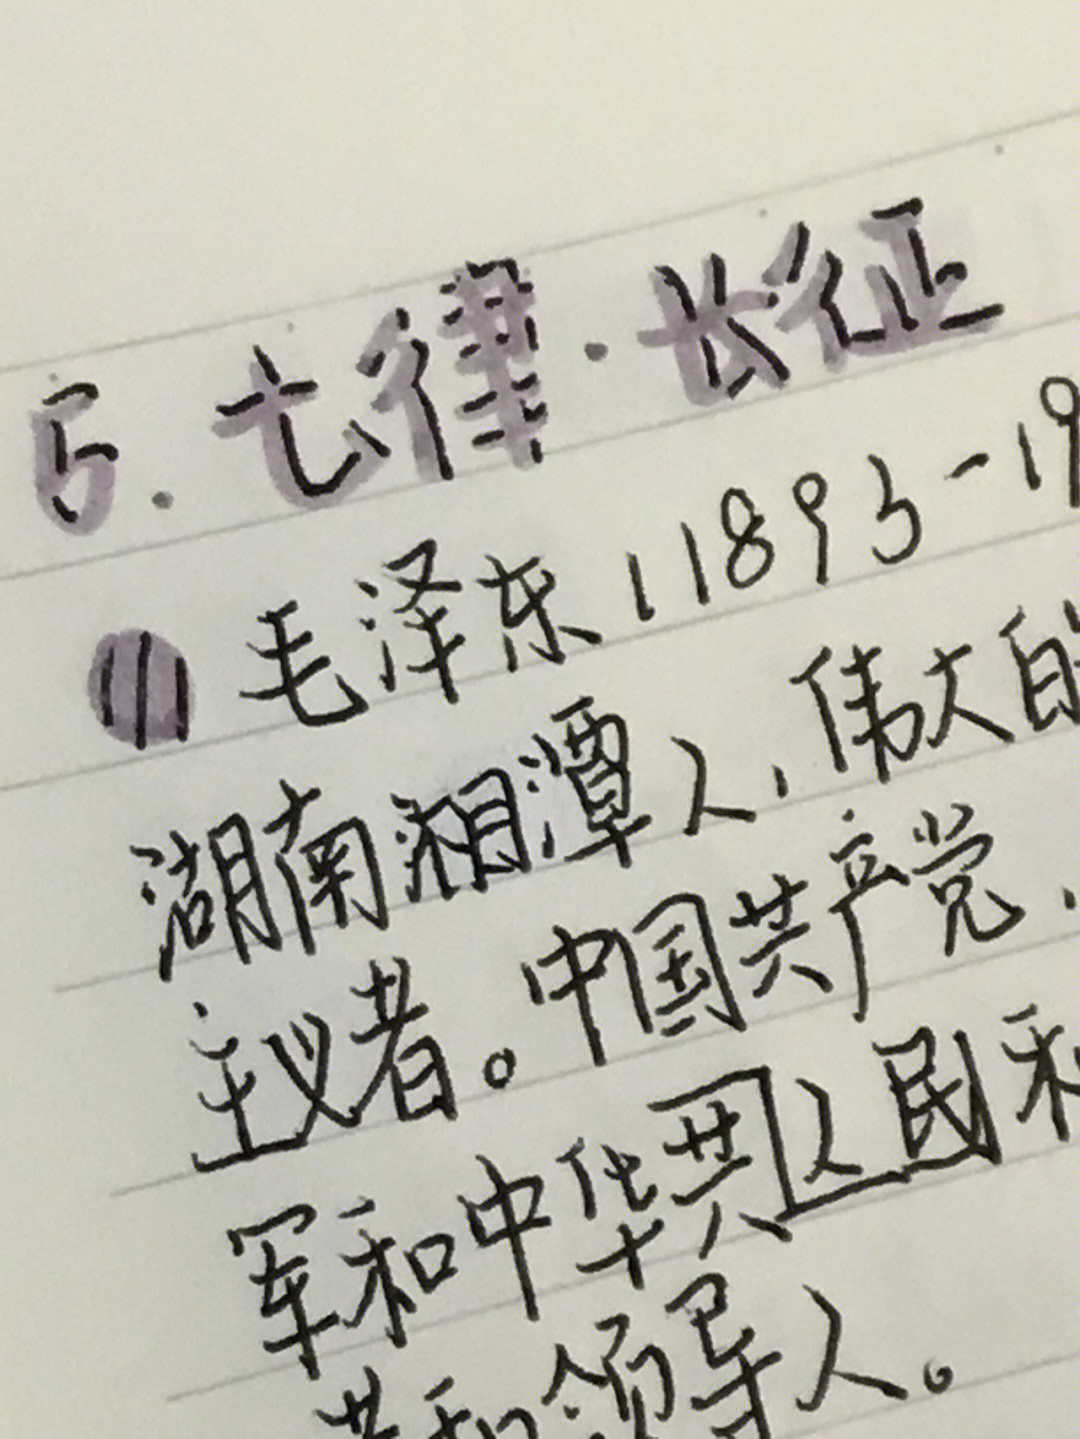 5. 七律·长征
毛泽东(1893-19
湖南湘潭人，伟大的
主义者。中国共产党，
军和中华共人民和
和领导人。